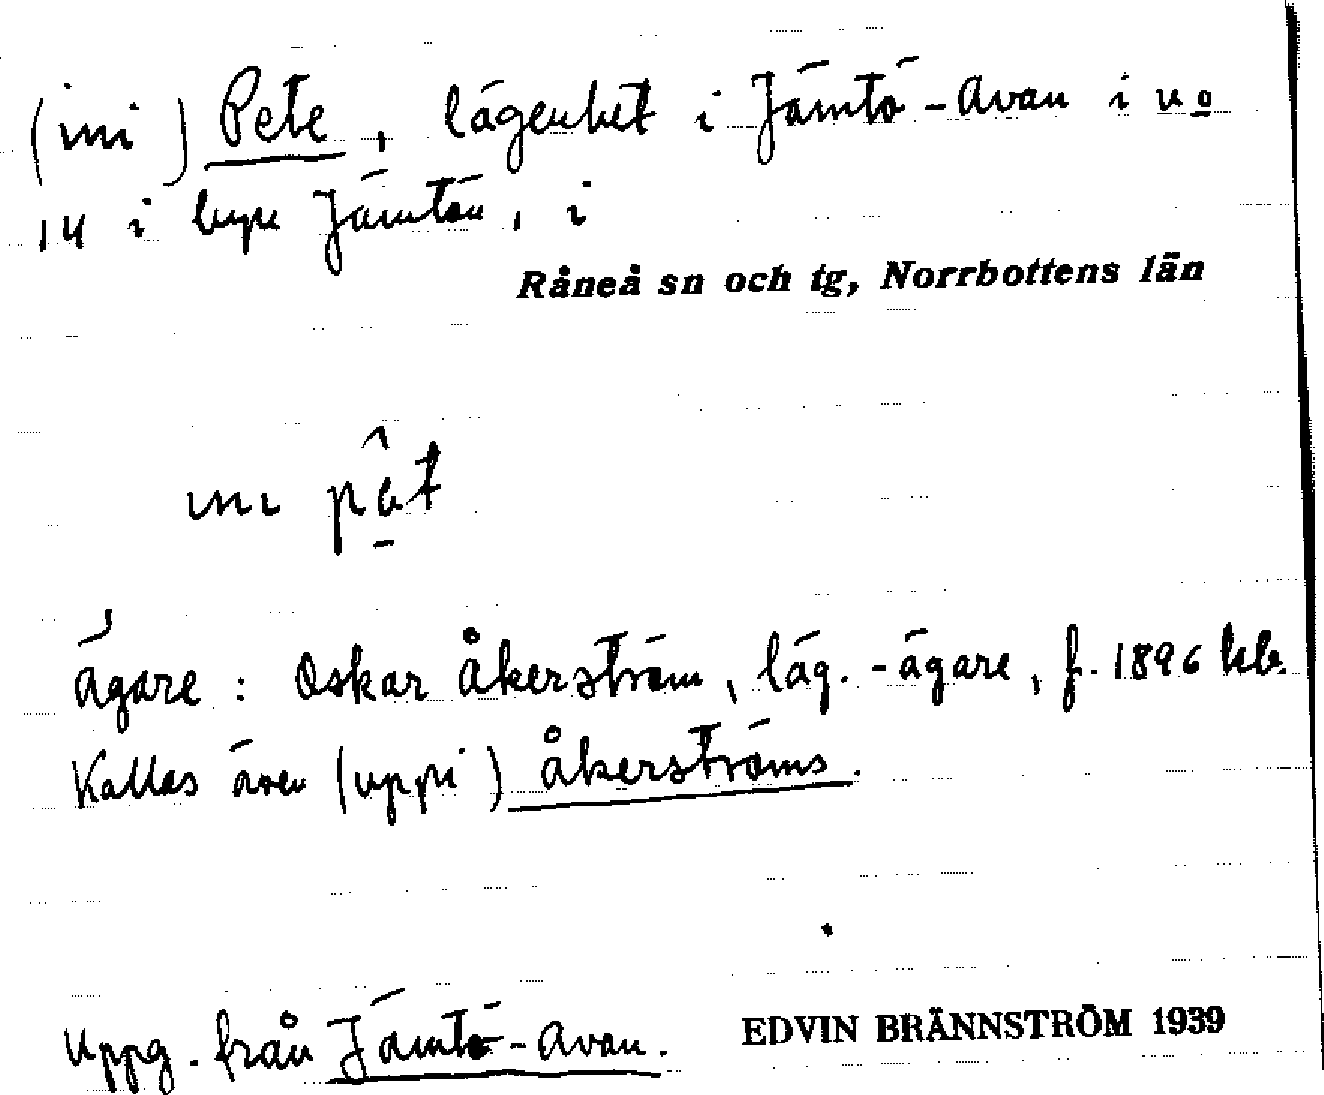 (ini) Pete, lägenhet i Jämtö-Avan i no
14 i byn Jämtön, i
Råneå sn och tg, Norrbottens län
ini
ägare: Oskar Åkerström, läg.-ägare, f. 1896 kb.
Kallas även (uppi) Åkerströms.
Uppg. från Jämtö-Avan.
EDVIN BRÄNNSTRÖM 1939